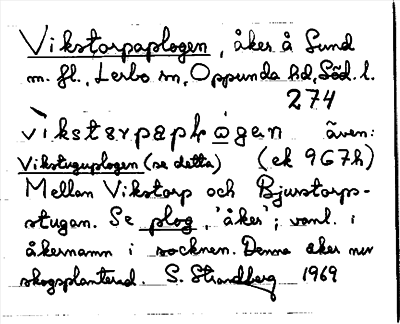 Vikstorpaplogen, åker å Sund
m. fl., Lerbo sn, Oppunda hd, Söd. l.
274
även:
Vikstuguplogen (se detta) (ek 967h)
Mellan Vikstorp och Bjurstorps-
stugan. Se plog, 'åker'; vanl. i
åkernamn i socknen. Denna åker nu
skogsplanterad. S. Strandberg 1969